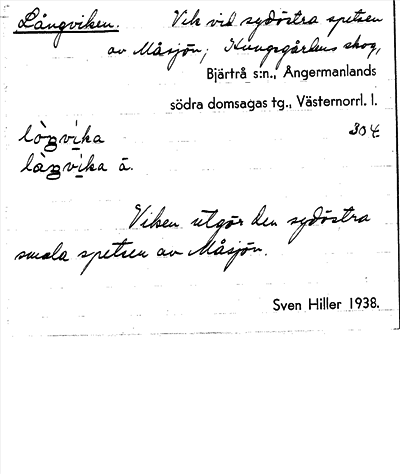 Långviken. Vik vid sydöstra spetsen
av Måsjön; Kungsgårdens skog,
Bjärtrå s:n., Ångermanlands
södra domsagas tg., Västernorrl. l.
304
lòŋvi̱ka
làŋvi̱ka ā.
Viken utgör den sydöstra
smala spetsen av Måsjön.
Sven Hiller 1938.